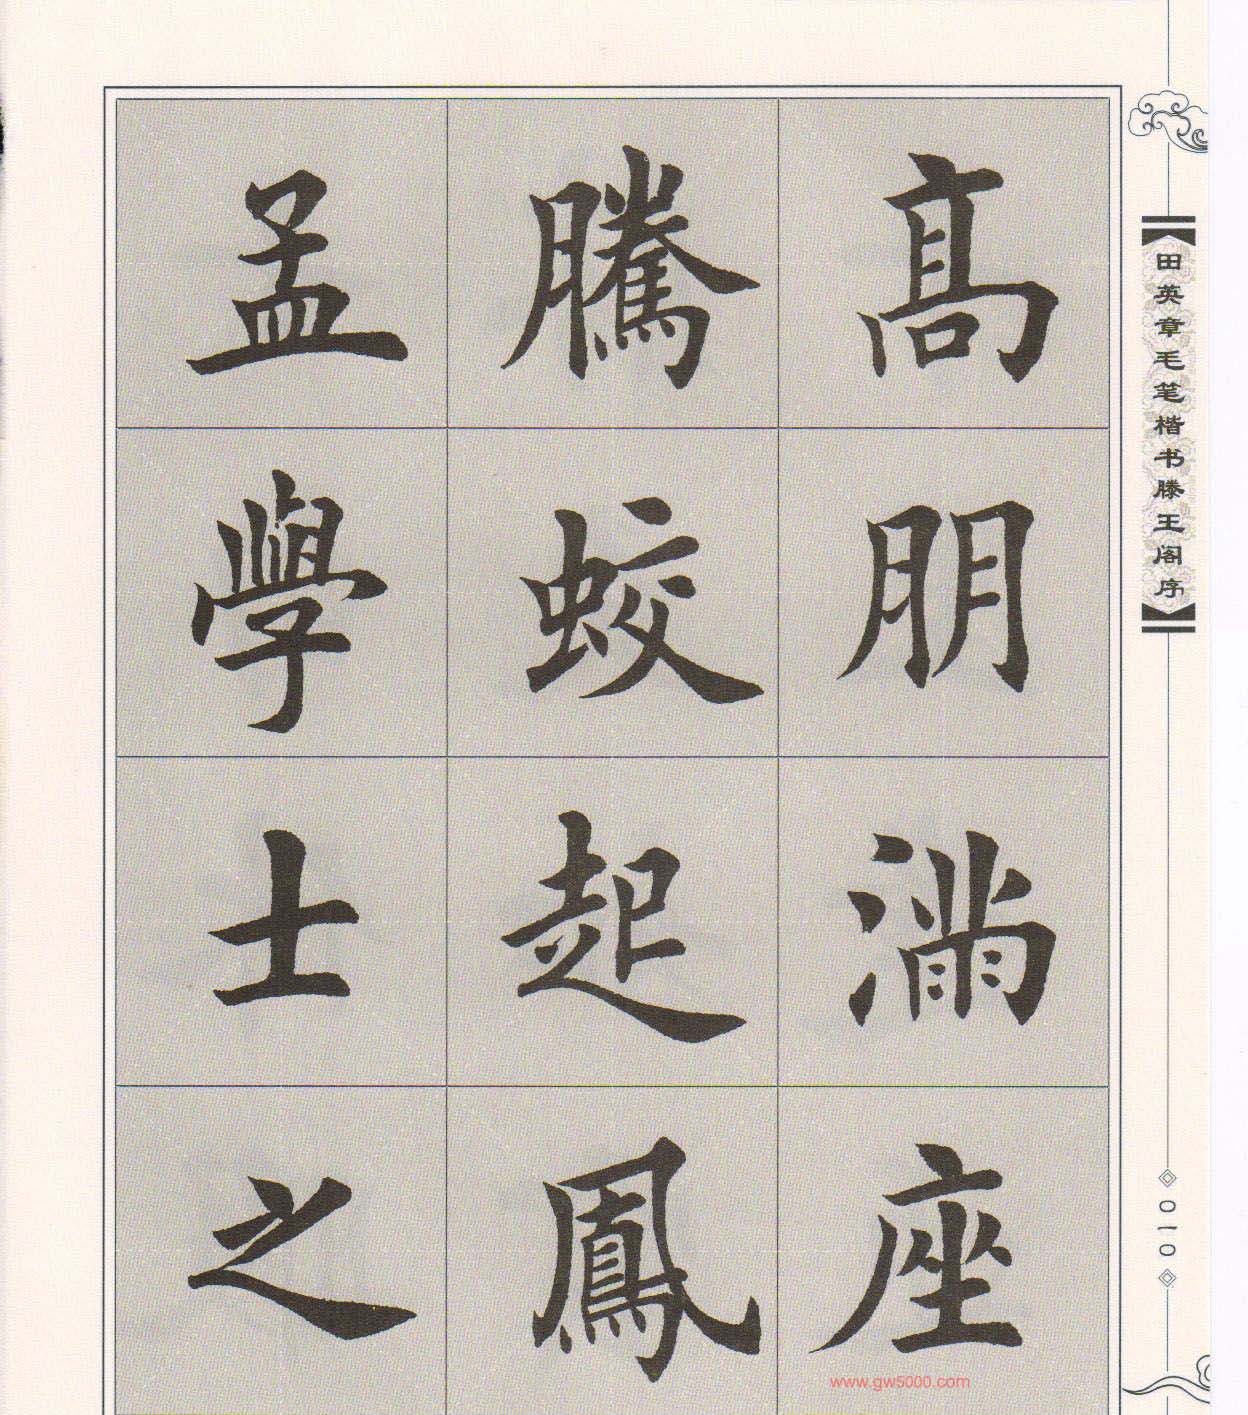 髙朋滿座
騰蛟起鳳
孟學士之
田英章毛笔楷书滕王阁序
010
www.gw5000.com